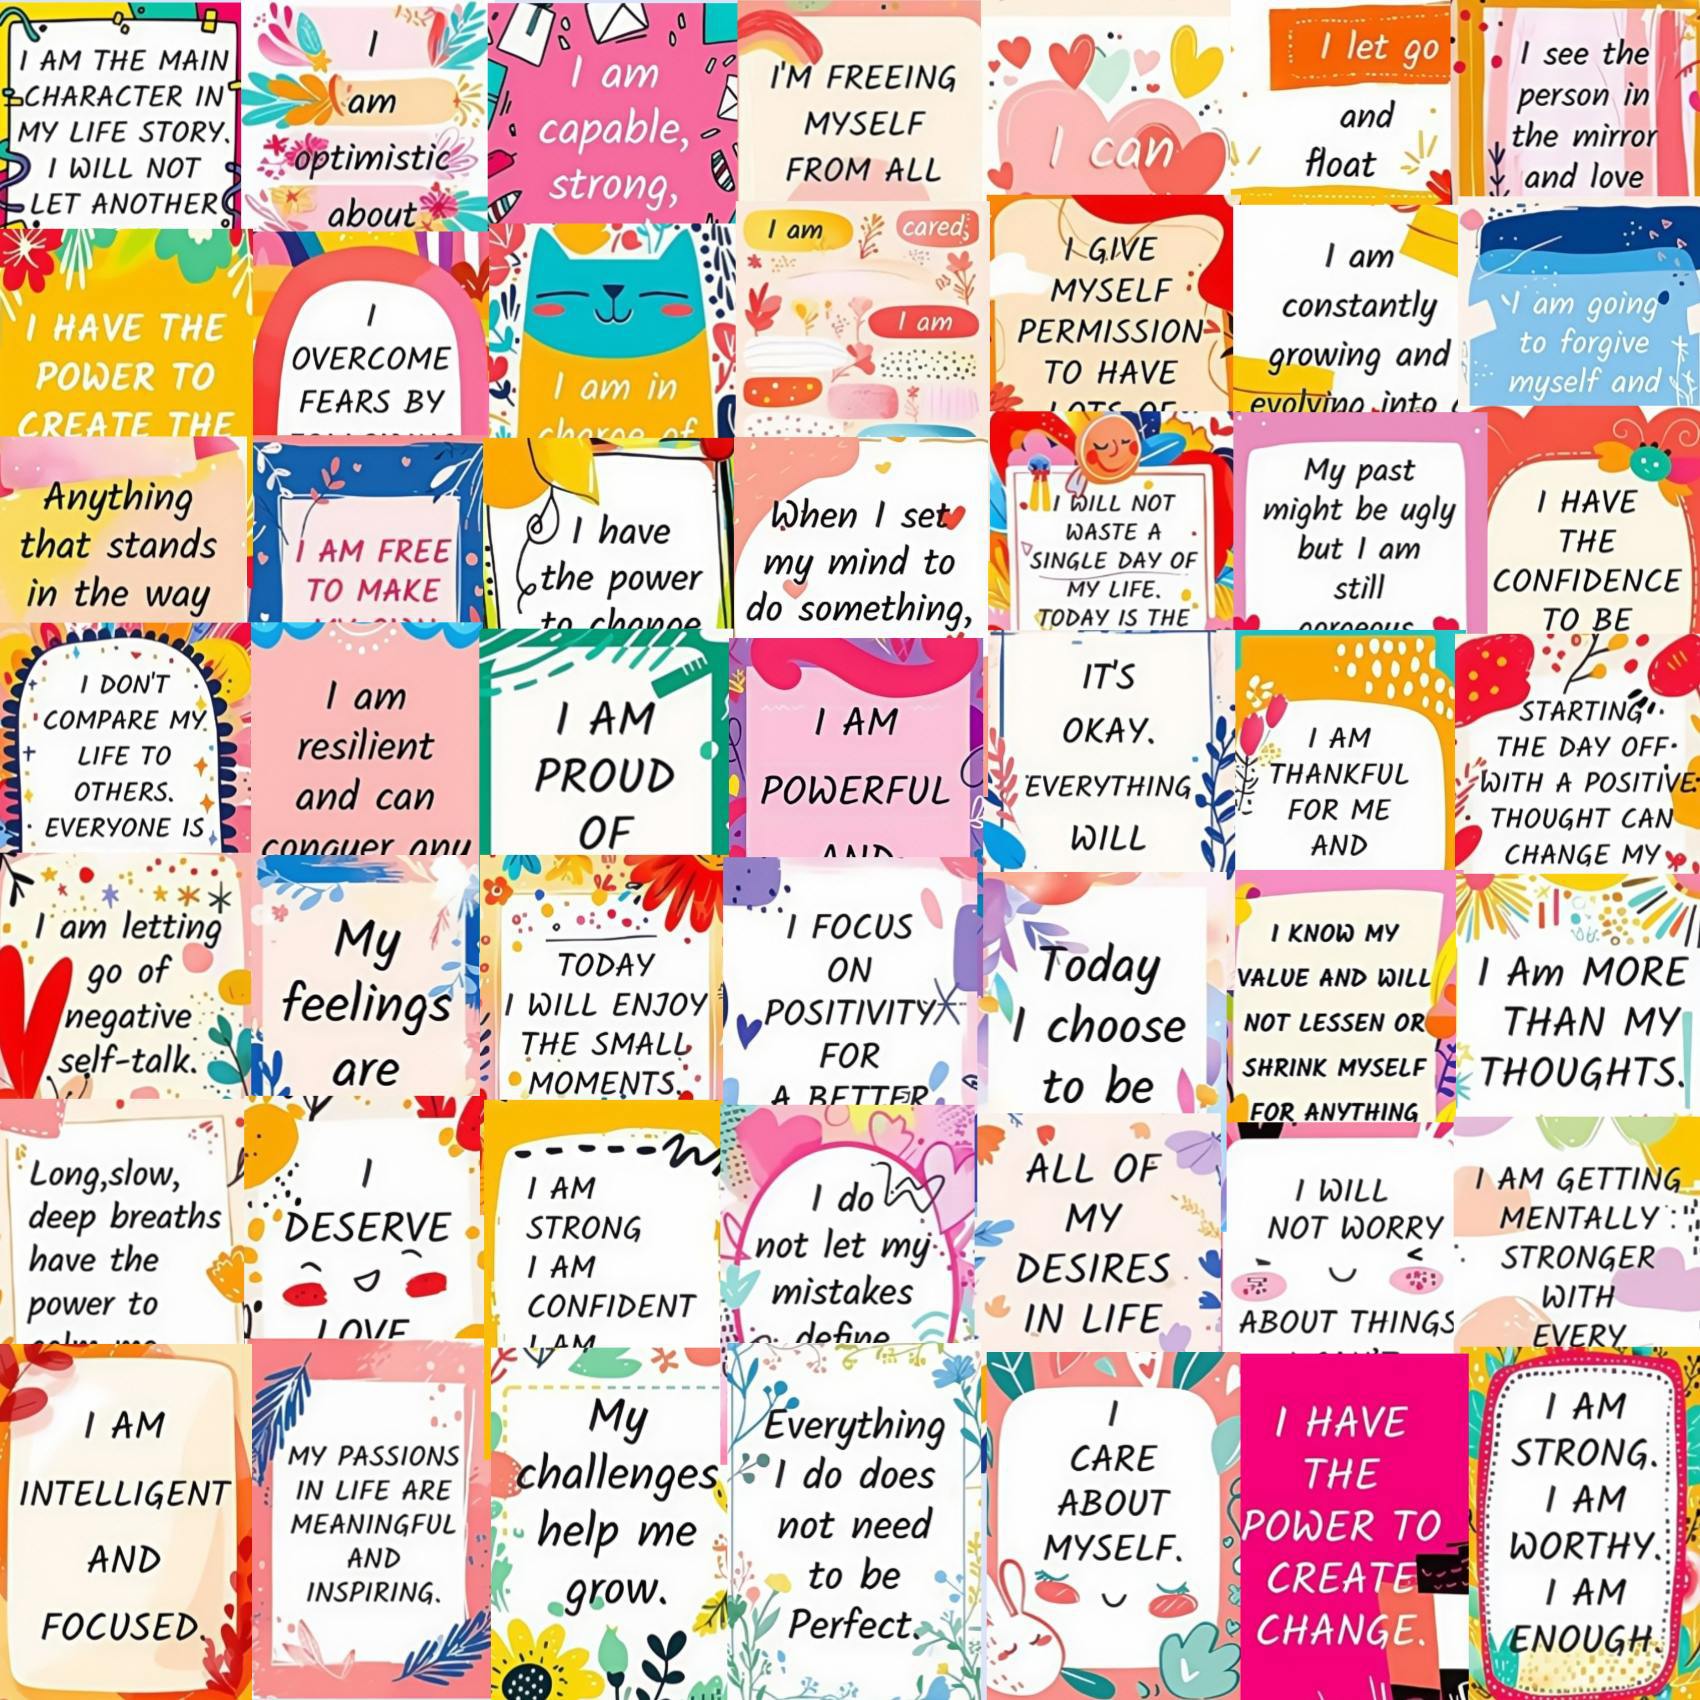 I AM THE MAIN
CHARACTER IN
MY LIFE STORY.
I WILL NOT
LET ANOTHER
I
am
optimistic
about
I am
capable,
strong,
I'M FREEING
MYSELF
FROM ALL
I can
I let go
and
float
I see the
person in
the mirror
and love
I HAVE THE
POWER TO
CREATE THE
I
OVERCOME
FEARS BY
I am in
charge of
I am
cared,
I am
I GIVE
MYSELF
PERMISSION
TO HAVE
LOTS OF
I am
constantly
growing and
evolving into
I am going
to forgive
myself and
Anything
that stands
in the way
I AM FREE
TO MAKE
I have
the power
to change
When I set
my mind to
do something,
I WILL NOT
WASTE A
SINGLE DAY OF
MY LIFE.
TODAY IS THE
My past
might be ugly
but I am
still
gorgeous
I HAVE
THE
CONFIDENCE
TO BE
I DON'T
COMPARE MY
LIFE TO
OTHERS.
EVERYONE IS
I am
resilient
and can
conquer any
I AM
PROUD
OF
I AM
POWERFUL
AND
IT'S
OKAY.
EVERYTHING
WILL
I AM
THANKFUL
FOR ME
AND
STARTING
THE DAY OFF
WITH A POSITIVE
THOUGHT CAN
CHANGE MY
I am letting
go of
negative
self-talk.
My
feelings
are
TODAY
I WILL ENJOY
THE SMALL
MOMENTS.
I FOCUS
ON
POSITIVITY
FOR
A BETTER
Today
I choose
to be
I KNOW MY
VALUE AND WILL
NOT LESSEN OR
SHRINK MYSELF
FOR ANYTHING
I Am MORE
THAN MY
THOUGHTS.
Long,slow,
deep breaths
have the
power to
calm me
I
DESERVE
LOVE
I AM
STRONG
I AM
CONFIDENT
I AM
I do
not let my
mistakes
define
ALL OF
MY
DESIRES
IN LIFE
I WILL
NOT WORRY
ABOUT THINGS
I CAN'T
I AM GETTING
MENTALLY
STRONGER
WITH
EVERY
I AM
INTELLIGENT
AND
FOCUSED.
MY PASSIONS
IN LIFE ARE
MEANINGFUL
AND
INSPIRING.
My
challenges
help me
grow.
Everything
I do does
not need
to be
Perfect.
I
CARE
ABOUT
MYSELF.
I HAVE
THE
POWER TO
CREATE
CHANGE.
I AM
STRONG.
I AM
WORTHY.
I AM
ENOUGH.